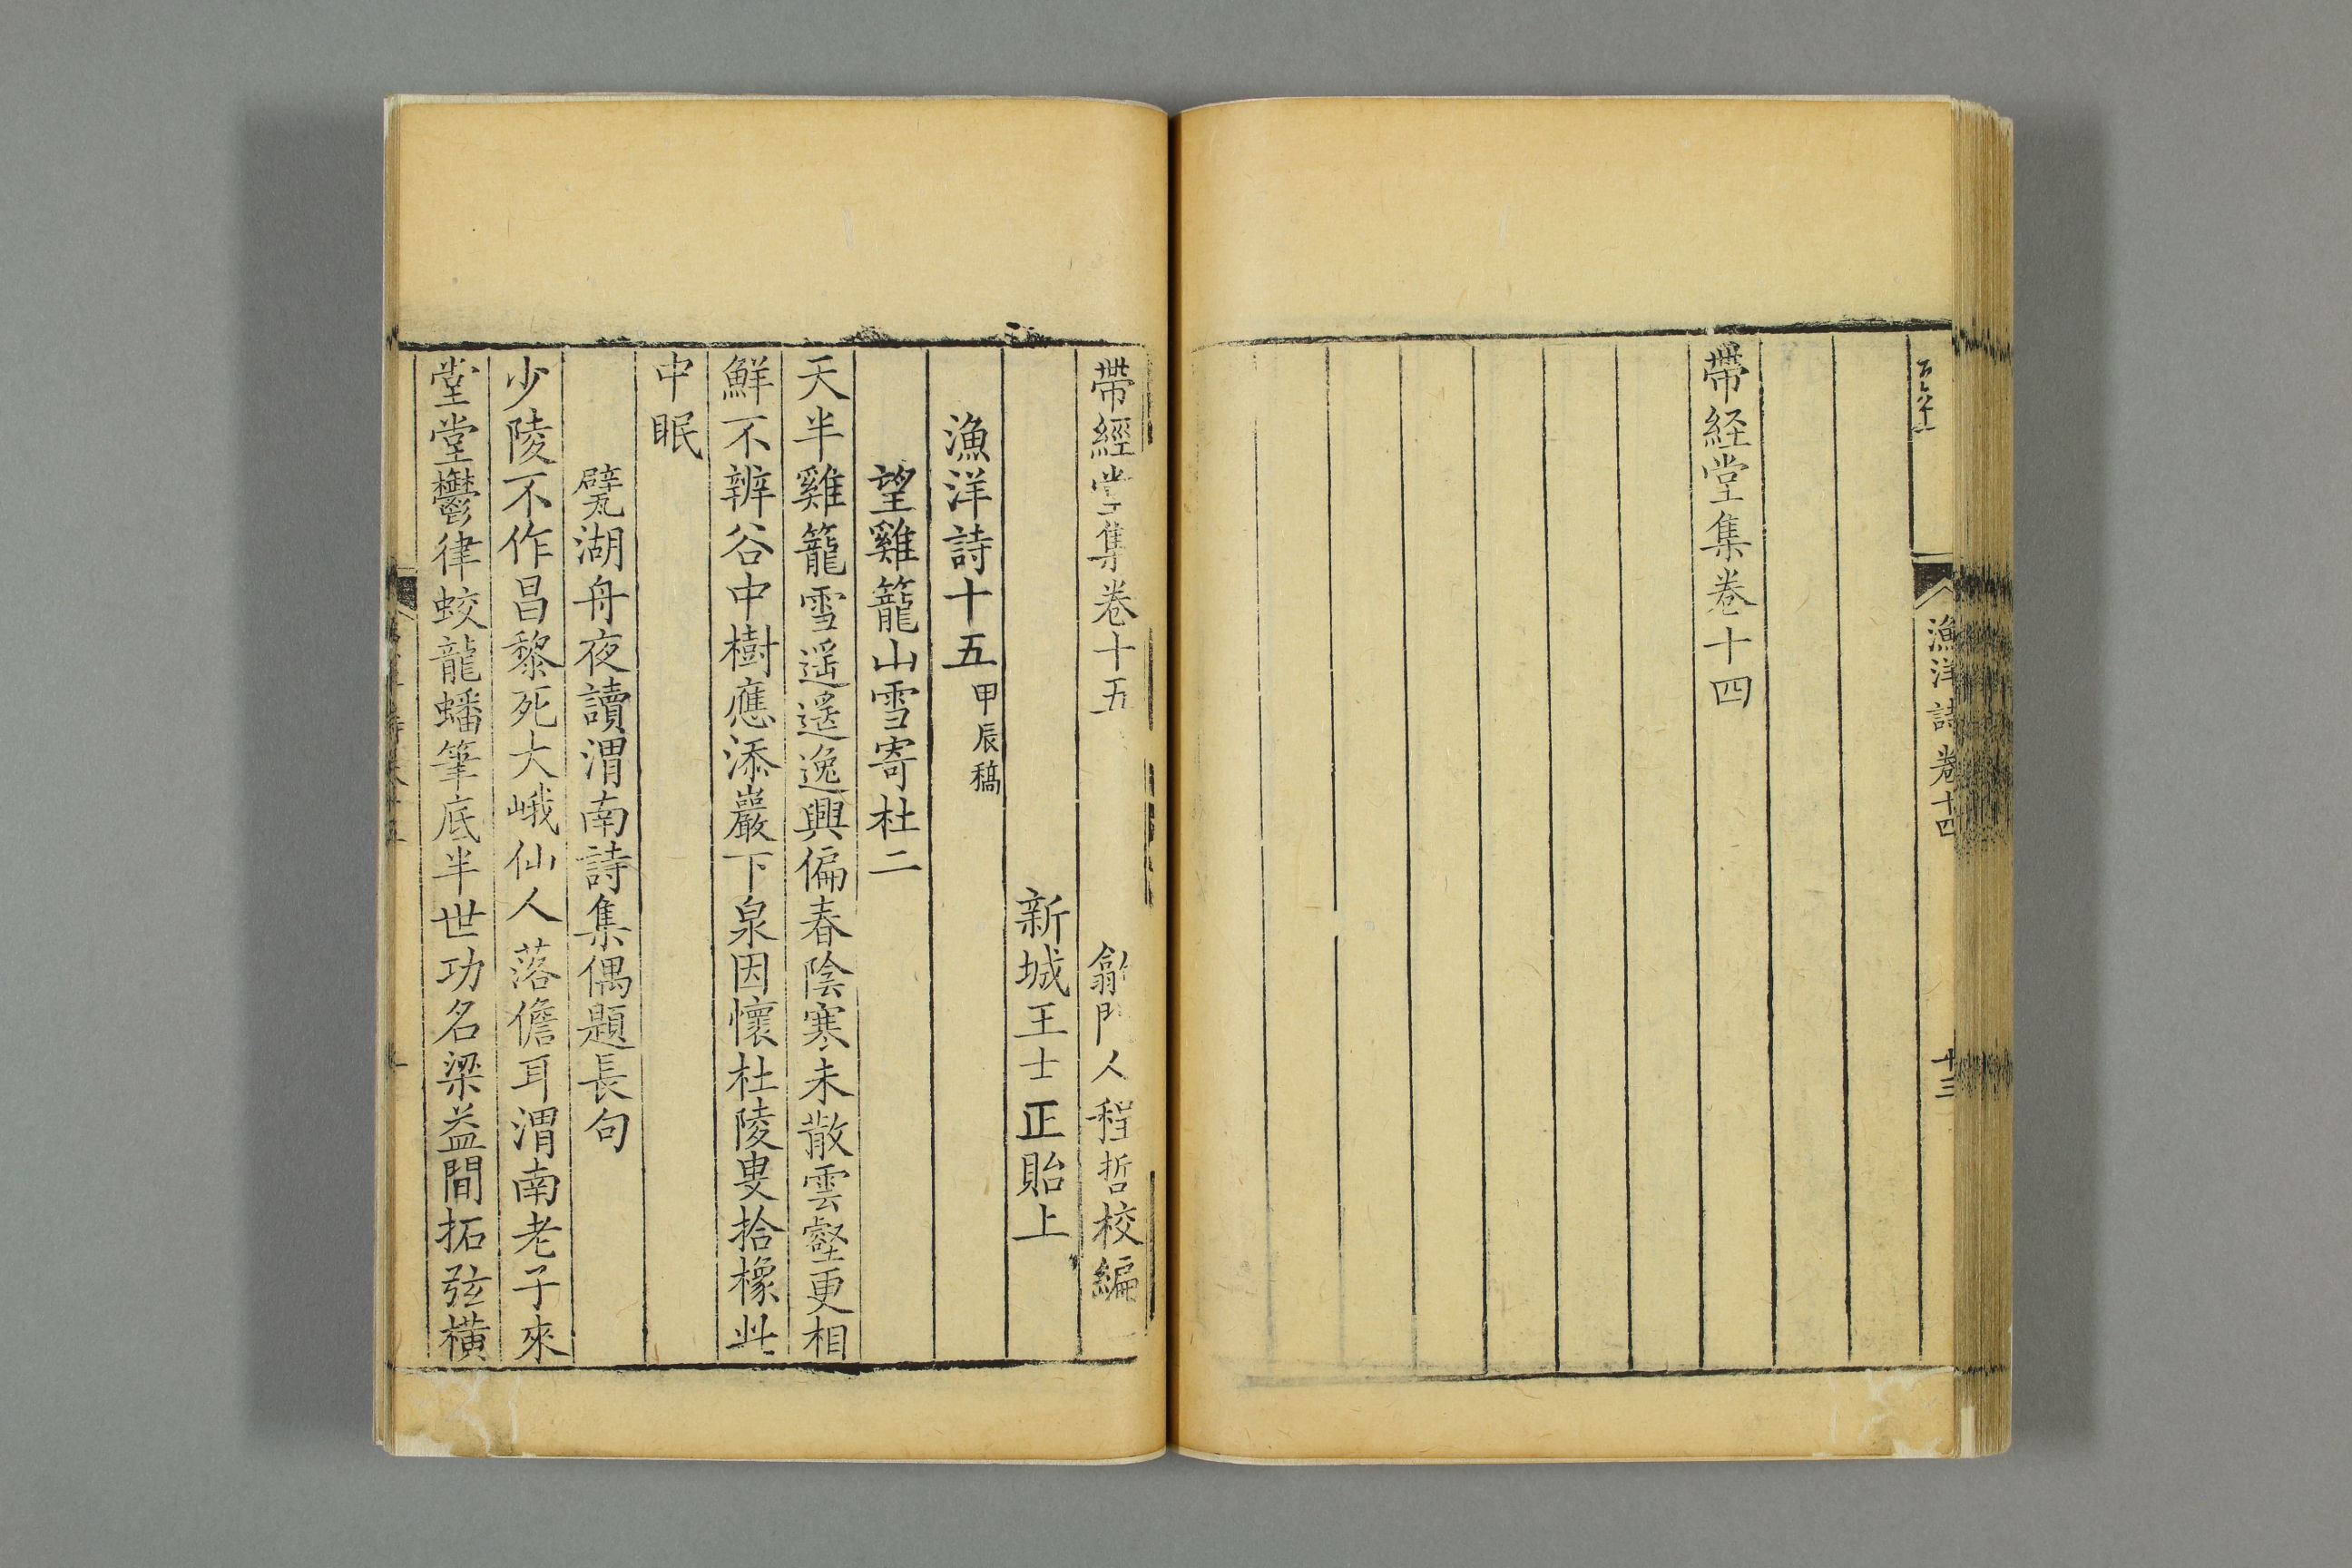 帶経堂集卷十四
漁洋詩卷十四
十三
帶經堂集卷十五
歙門人程哲校編
新城王士正貽上
漁洋詩十五 甲辰稿
望雞籠山雪寄杜二
天半雞籠雪遥遥逸興偏春陰寒未散雲壑更相
鮮不辨谷中樹應添巖下泉因懷杜陵叟拾橡此
中眠
甓湖舟夜讀渭南詩集偶題長句
少陵不作昌黎死大峨仙人落儋耳渭南老子來
堂堂鬱律蛟龍蟠筆底半世功名梁益間拓弦橫